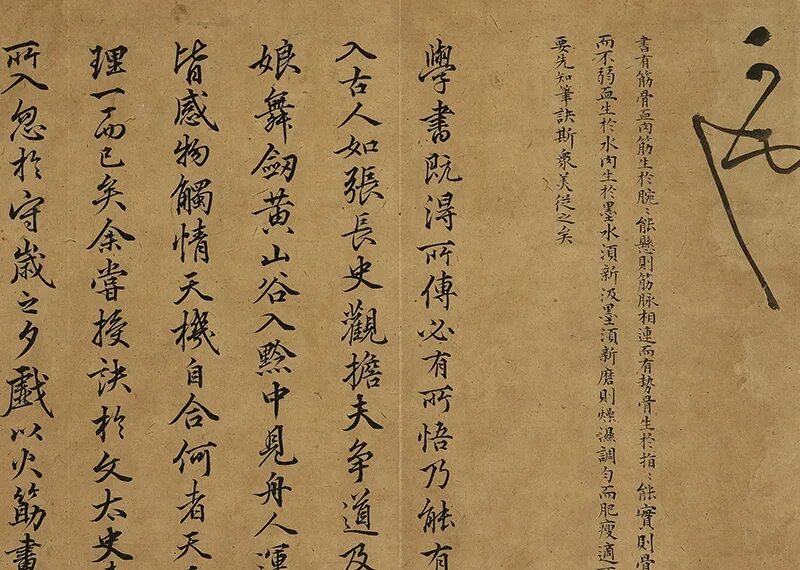 書有筋骨血肉筋生於腕〻能懸則筋脉相連而有勢骨生於指〻能實則骨
而不弱血生於水肉生於墨水須新汲墨須新磨則燥濕調勻而肥瘦適
要先知筆訣斯衆美從之矣
學書既得所傳必有所悟乃能有
入古人如張長史觀擔夫争道及
娘舞劒黄山谷入黔中見舟人
皆感物觸情天機自合何者天
理一而已矣余嘗授訣於文太史
所入忽於守歲之夕戲以火筯畫